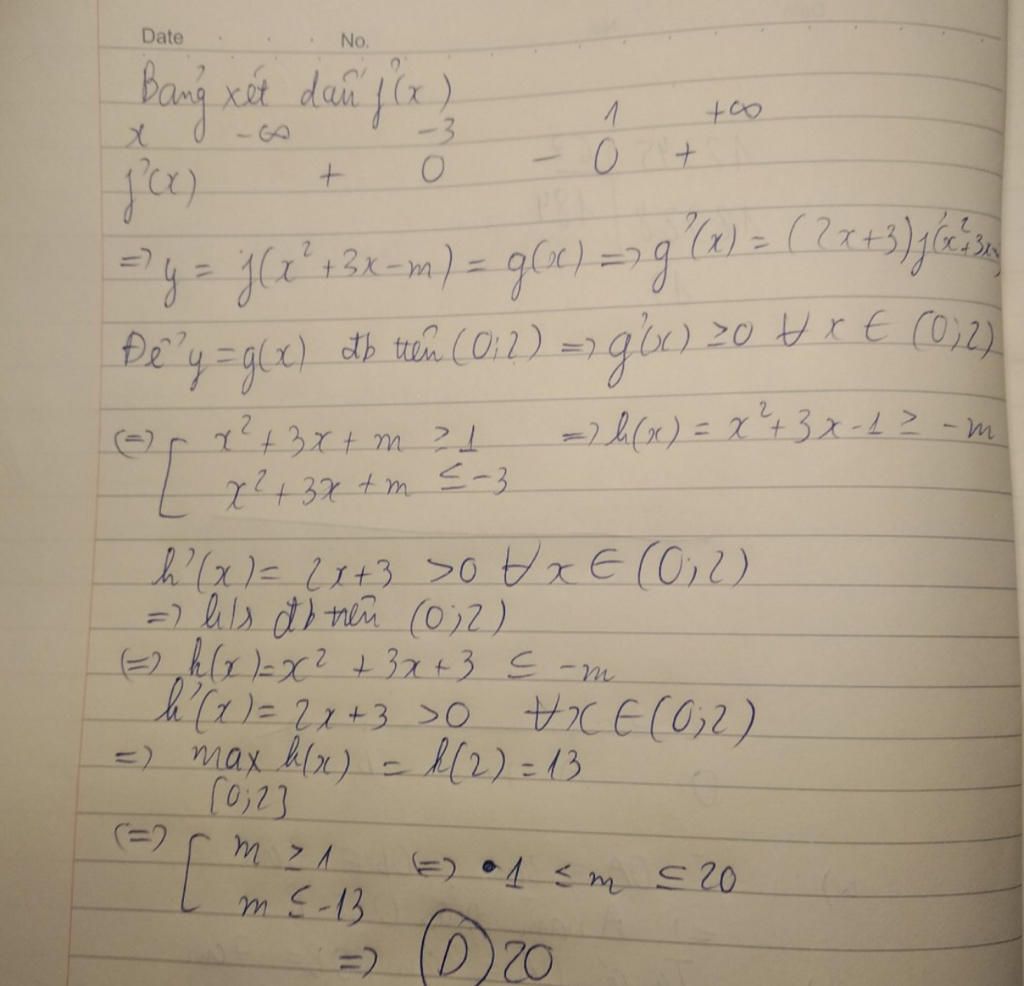 Date No.
Bảng xét dấu f'(x)
x -∞ -3 1 +∞
f'(x) + 0 - 0 +
=> y = f(x² + 3x - m) = g(x) => g'(x) = (2x+3) f'(x²+3x-
Để y = g(x) đb trên (0;2) => g'(x) ≥ 0 ∀ x ∈ (0;2)
(=) [ x² + 3x + m ≥ 1 => h(x) = x² + 3x - 1 ≥ -m
x² + 3x + m ≤ -3
h'(x) = 2x+3 > 0 ∀ x ∈ (0;2)
=> h/s đb trên (0;2)
(=) h(x) = x² + 3x + 3 ≤ -m
h'(x) = 2x + 3 > 0 ∀ x ∈ (0;2)
=> max h(x) = h(2) = 13
[0;2]
(=) [ m ≥ 1 (=) 1 ≤ m ≤ 20
m ≤ -13
=> D 20